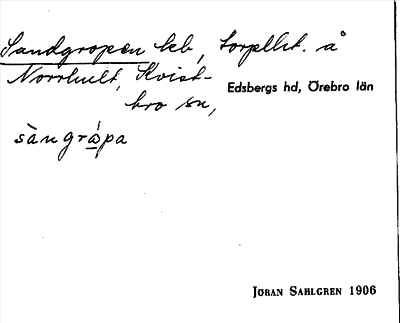 Sandgropen leb, torpllt. å
Norrhult, Kvist-
bro sn,
Edsbergs hd, Örebro län
sàngrápa
JÖRAN SAHLGREN 1906